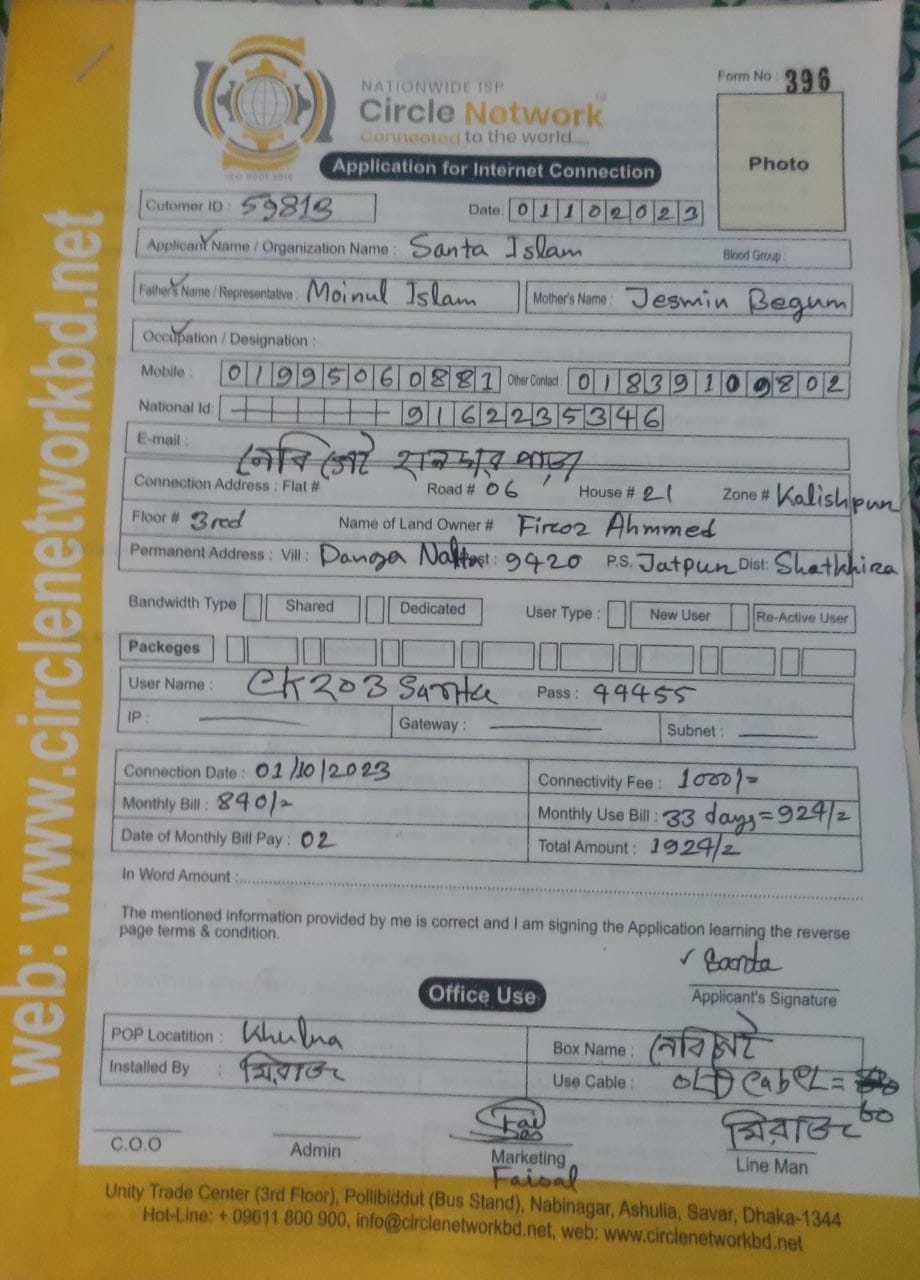 web: www.circlenetworkbd.net
NATIONWIDE ISP
Circle Network
Connected to the world.....
ISO 9001:2015
Form No : 396
Photo
Application for Internet Connection
Cutomer ID : 59813 Date: 01102023
Applicant Name / Organization Name : Santa Islam Blood Group :
Father's Name / Representative : Moinul Islam Mother's Name : Jesmin Begum
Occupation / Designation :
Mobile : 01995060881 Other Contact : 01839109802
National Id: 9162235346
E-mail :
নেবি গেট হালদার পাড়া
Connection Address : Flat # Road # 06 House # 21 Zone # Kalishpur
Floor # 3rd Name of Land Owner # Firoz Ahmmed
Permanent Address : Vill : Danga Post : 9420 P.S. Jatpur Dist: Shatkhira
Bandwidth Type Shared Dedicated User Type : New User Re-Active User
Packeges
User Name : CK203 Santa Pass : 44455
IP : Gateway : Subnet :
Connection Date : 01/10/2023 Connectivity Fee : 1000/=
Monthly Bill : 840/= Monthly Use Bill : 33 days = 924/=
Date of Monthly Bill Pay : 02 Total Amount : 1924/=
In Word Amount :
The mentioned information provided by me is correct and I am signing the Application learning the reverse
page terms & condition.
Santa
Applicant's Signature
Office Use
POP Locatition : Khulna Box Name : নেবি গেট
Installed By : মিরাজ Use Cable : OLD CabeL = 60
মিরাজ
C.O.O Admin Marketing Line Man
Faisal
Unity Trade Center (3rd Floor), Pollibiddut (Bus Stand), Nabinagar, Ashulia, Savar, Dhaka-1344
Hot-Line: + 09611 800 900, info@circlenetworkbd.net, web: www.circlenetworkbd.net